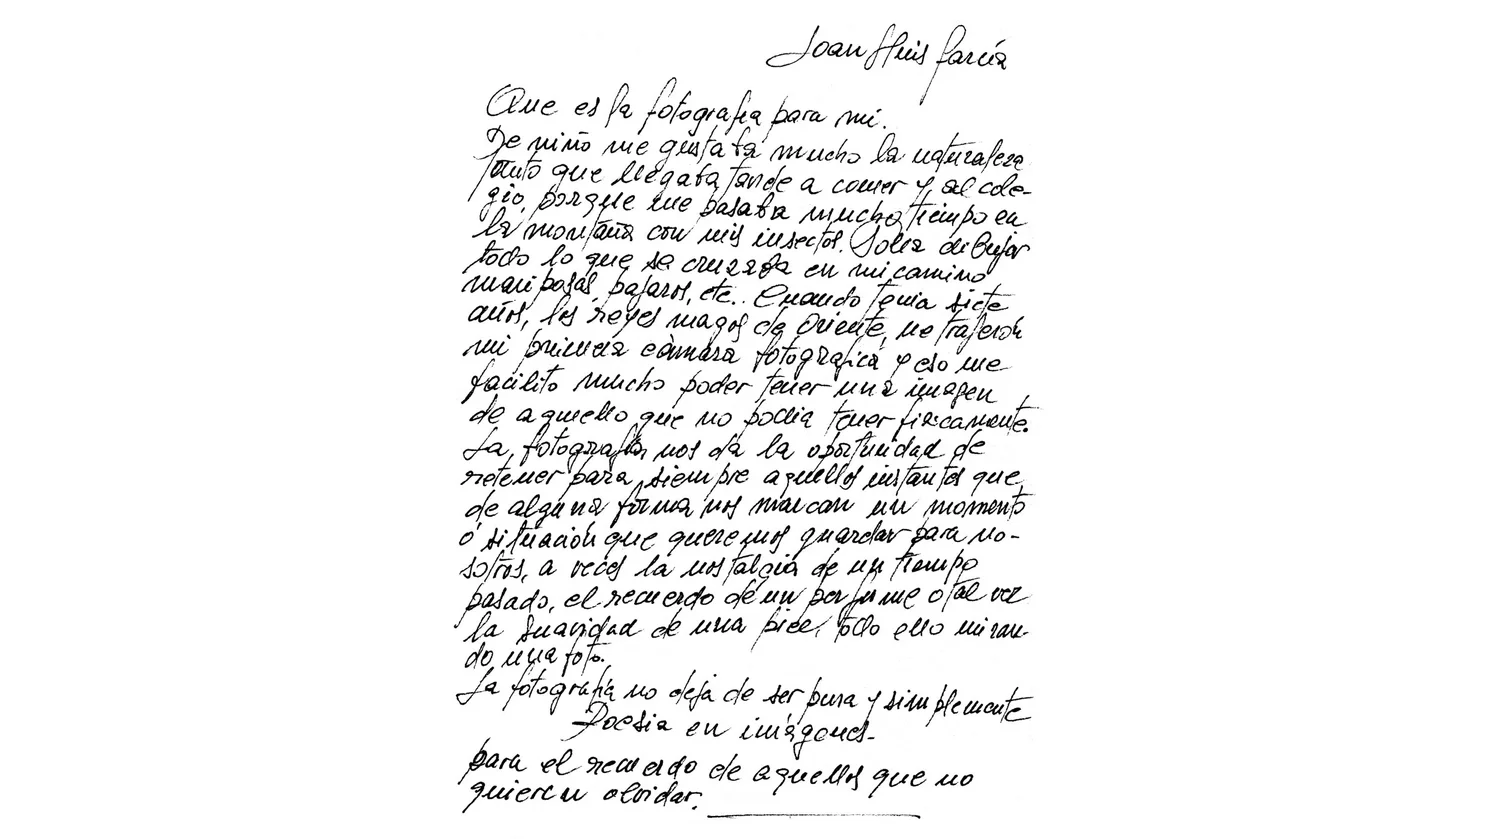 Joan Lluis García
Que es la fotografia para mi.
De niño me gustaba mucho la naturaleza
tanto que llegaba tarde a comer y al cole-
gio, porque me pasaba mucho tiempo en
la montaña con mis insectos. Solia dibujar
todo lo que se cruzaba en mi camino
mariposas, pajaros, etc.. Cuando tenia siete
años, los reyes magos de Oriente, me trajerón
mi primera cámara fotografica y eso me
facilito mucho poder tener una imagen
de aquello que no podia tener fisicamente.
La fotografia nos da la oportunidad de
retener para siempre aquellos instantes que
de alguna forma nos marcan un momento
ó situación que queremos guardar para no-
sotros, a veces la nostalgia de un tiempo
pasado, el recuerdo de un perfume o tal vez
la suavidad de una piel, todo ello miran-
do una foto.
La fotografia no deja de ser pura y simplemente
Poesia en imágenes-
para el recuerdo de aquellos que no
quieren olvidar.